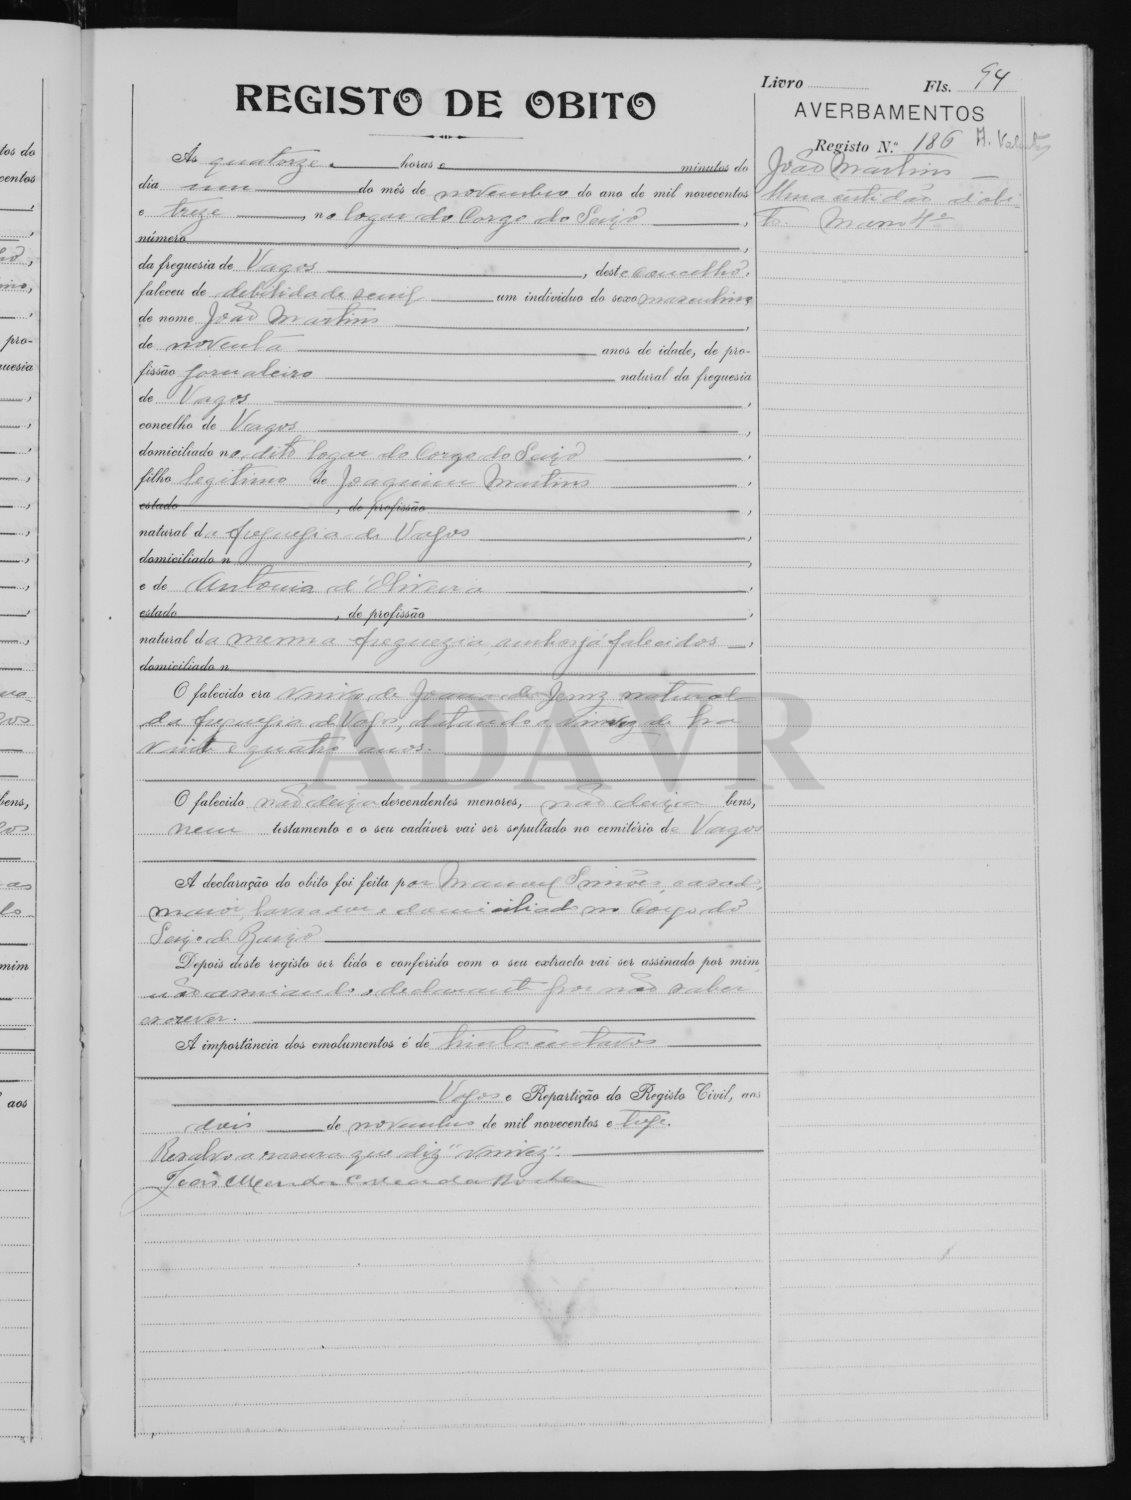 Livro Fls. 94
REGISTO DE OBITO
AVERBAMENTOS
Registo N.º 186
João Martins
Uma certidão d'obi-
to.
Ás quatorze horas e minutos do
dia um do mês de novembro do ano de mil novecentos
e treze, no logar do Corgo do Seixo,
número,
da freguesia de Vagos, deste concelho,
faleceu de debilidade senil um individuo do sexo masculino
de nome João Martins,
de noventa anos de idade, de pro-
fissão jornaleiro natural da freguesia
de Vagos,
concelho de Vagos,
domiciliado no dito logar do Corgo do Seixo,
filho legitimo de Joaquim Martins,
estado, de profissão,
natural da freguesia de Vagos,
domiciliado n,
e de Antonia d'Oliveira,
estado, de profissão,
natural da mesma freguezia ambos já falecidos,
domiciliado n
O falecido era viuvo de Joana da Cruz natural
da freguesia de Vagos, datando a viuvez de ha
vinte e quatro anos.
O falecido não deixa descendentes menores, não deixa bens,
nem testamento e o seu cadáver vai ser sepultado no cemitério de Vagos
A declaração do obito foi feita por Manuel Simões, casado,
maior, lavrador e domiciliado no Corgo do
Seixo de
Depois deste registo ser lido e conferido com o seu extracto vai ser assinado por mim,
não assinando o declarante por não saber
escrever.
A importância dos emolumentos é de trinta centavos
Vagos e Repartição do Registo Civil, aos
dois de novembro de mil novecentos e treze.
Resalvo a rasura que diz "viuvez".
João Mendes Correia da Rocha
ADAVR